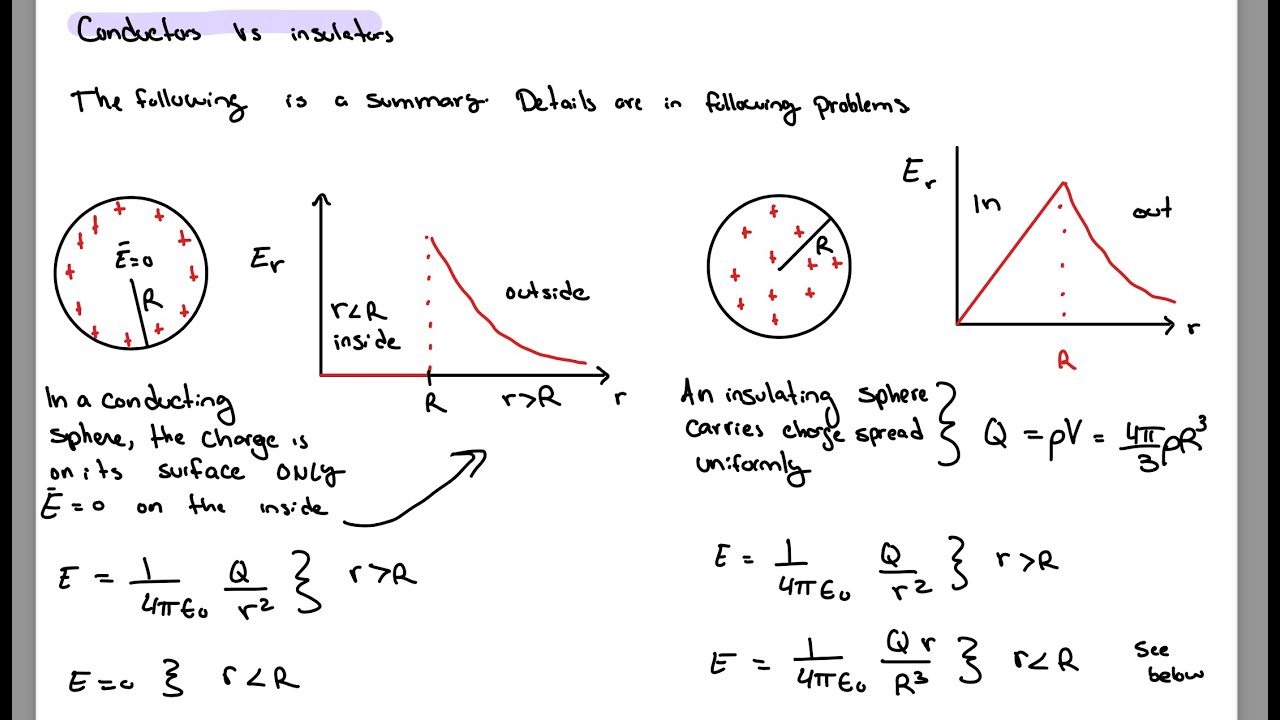 Conductors vs insulators
The following is a summary. Details are in following problems
Ē=0
R
Er
r<R
inside
outside
R
r>R
r
In a conducting
sphere, the charge is
on its surface ONLY
Ē=0 on the inside
E = 1/4πϵ₀ Q/r² } r>R
E=0 } r<R
R
Er
In
out
r
R
An insulating sphere
carries charge spread
uniformly
} Q = ρV = 4π/3 ρR³
E = 1/4πϵ₀ Q/r² } r>R
E = 1/4πϵ₀ Qr/R³ } r<R
See
below